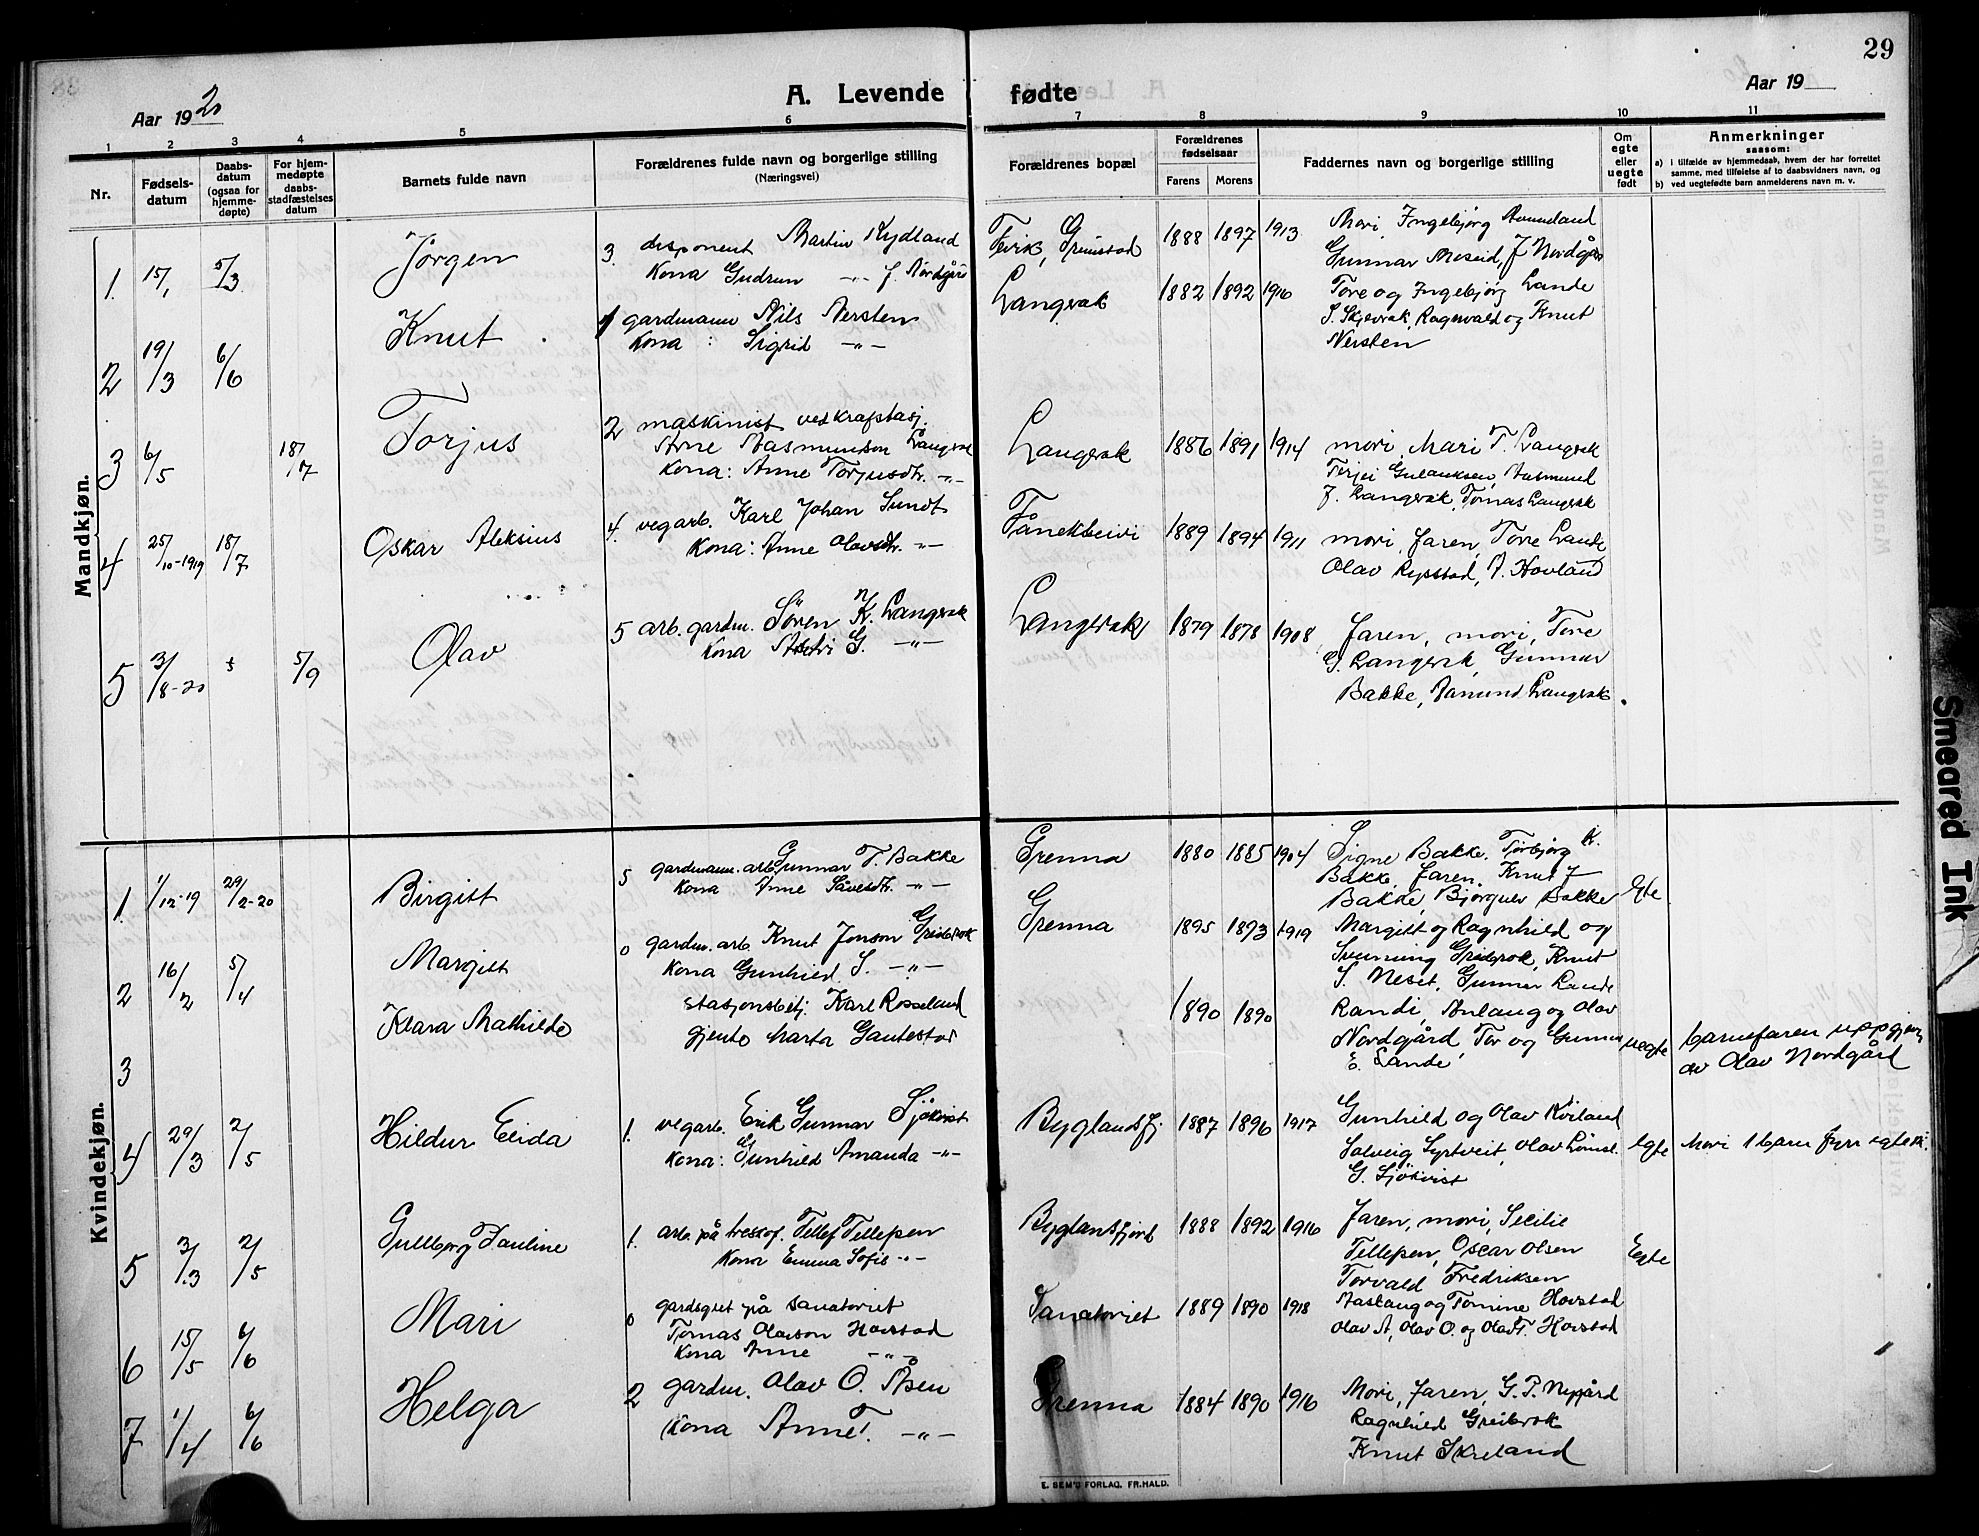 29
Aar 1920
A. Levende fødte
Aar 19
1 2 3 4 5 6 7 8 9 10 11
Nr.
Fødselsdatum
Daabsdatum (ogsaa for hjemmedøpte)
For hjemmedøpte daabsstadfæstelses datum
Barnets fulde navn
Forældrenes fulde navn og borgerlige stilling
(Næringsvei)
Forældrenes bopæl
Forældrenes fødselsaar
Farens Morens
Faddernes navn og borgerlige stilling
Om egte eller uegte født
Anmerkninger
saasom:
a) i tilfælde av hjemmedaab, hvem der har forrettet
samme, med tilføielse af to daabsvidners navn, og
b) ved uegtefødte barn anmelderens navn m. v.
Mandkjøn.
1. 15/1 5/3 Jørgen 3. disponent Martin Rydland
Kona Gudrun -"- f. Nordgård
Fevik, Grimstad 1888 1897 1913 Mori, Ingebjørg
Gunnar Moseid, J Nordgård
2 19/3 6/6 Knut 1 gardmann Nils Nersten
Kona : Sigrid -"-
Langerak 1882 1892 1916 Tore og Ingebjørg Lande
S. Skjevrak, Ragnvald og Knut
Nersten
3 6/5 18/7 Torjus 2 maskinist ved krafstasj.
Arne Aasmundson Langerak
Kona: Anne Torjusdtr. -"-
Langerak 1886 1891 1914 mori, Mari T. Langerak
Terjei Gulauksen, Aasmund
J. Langerak, Tomas Langerak
4 25/10-1919 18/7 Oskar Aleksius 4. vegarb. Karl Johan Sundt
Kona: Anne Olavsdtr. -"-
Fånekleivi 1889 1894 1911 mori, faren, Tore Lande
Olav Rysstad, A. Hovland
5 3/8-20 5/9 Olav 5 arb. gardm. Søren K. Langerak
Kona G. -"-
Langerak 1879 1878 1908 faren, mori, Tore
G. Langerak, Gunnar
Bakke, Aamund Langerak.
Kvindekjøn.
1. 1/12-19 29/2-20 Birgitt 5 gardmann. arb. Gunnar T. Bakke
Kona Anne Såvesdtr. -"-
Grenna 1880 1885 1904 Signe Bakke. Torbjørg K.
Bakke, faren, Knut J
Bakke, Bjørgulv Bakke Egte
2 16/2 5/4 Margitt 0 gardm. arb. Knut Jonson Greibrok
Kona Gunhild S. -"-
Grenna 1895 1893 1919 Margitt og Ragnhild og
Svenning Greibrok, Knut
S. Neset, Gunnar Lande
3 Klara Mathilde stasjonsbetj. Karl Rosseland
gjento Marta Gautestad
1890 1890 Randi, Aulaug og Olav
Nordgård Tor og Gunnar
E. Lande uegte
barnefaren uppgjeven
av Olav Nordgård
4 29/3 2/5 Hildur Elida 1. vegarb. Erik Gunnar Sjökvist
Kona: Gunhild Amanda -"-
Byglandsfj. 1887 1896 1917 Gunhild og Olav Kviland
Solveig Syrtveit, Olav
G. Sjökvist egte Mori 1 barn fyrr
5 3/3 2/5 Gullborg Pauline 1. arb. på treskof. Tellef Tellefsen
Kona Emma Sofie -"-
Byglandsfjord 1888 1892 1916 faren, mori, Secilie
Tellefsen, Oscar Olsen
Torvald Fredriksen Egte
6 15/5 6/6 Mari 0 gardsgut på sanatoriet
Tomas Olavson Hovstad
Kona Anne -"-
Sanatoriet 1889 1890 1918 Aaslaug og Tomine Hovstad
Olav A, Olav O. og Olav T. Hovstad
7 1/4 6/6 Helga 2 gardm. Olav O. Åsen
Kona Anne T. -"-
Grenna 1884 1890 1916 Mori, faren, G. P. Nygård
Ragnhild Greibrok
Knut Skreland
E. SEM'S FORLAG, FR.HALD.
Smeared Ink